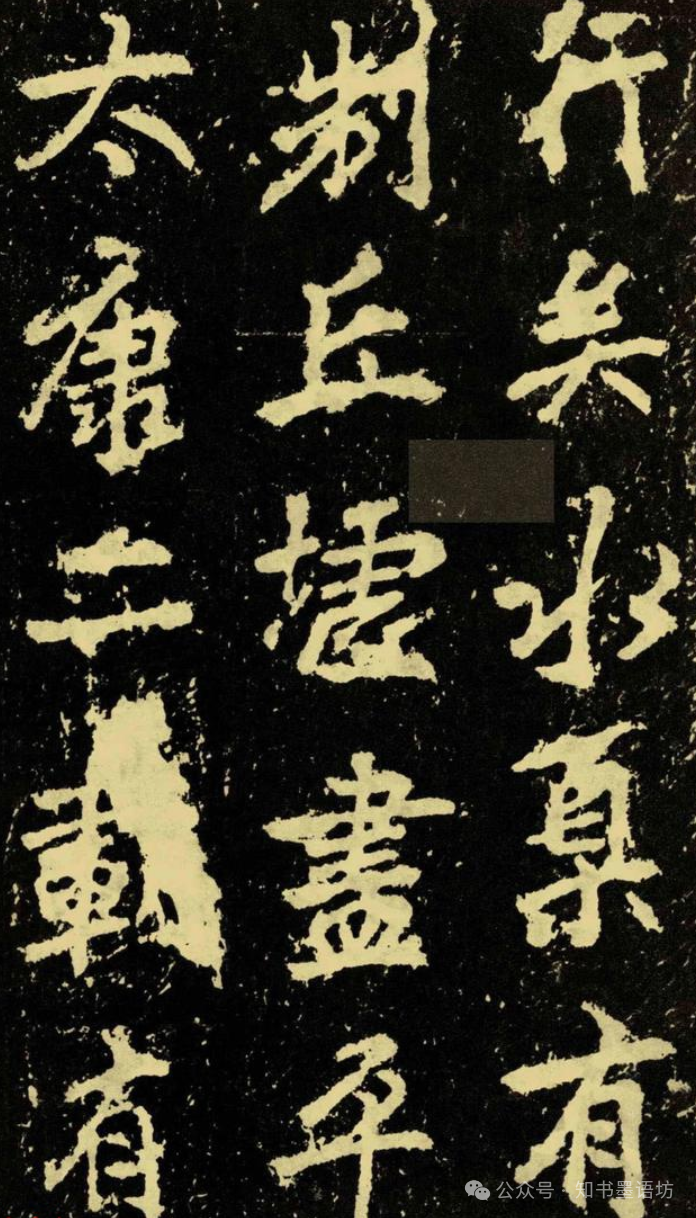 行矣水臬有
制丘墟盡平
太康二載有
公众号 · 知书墨语坊